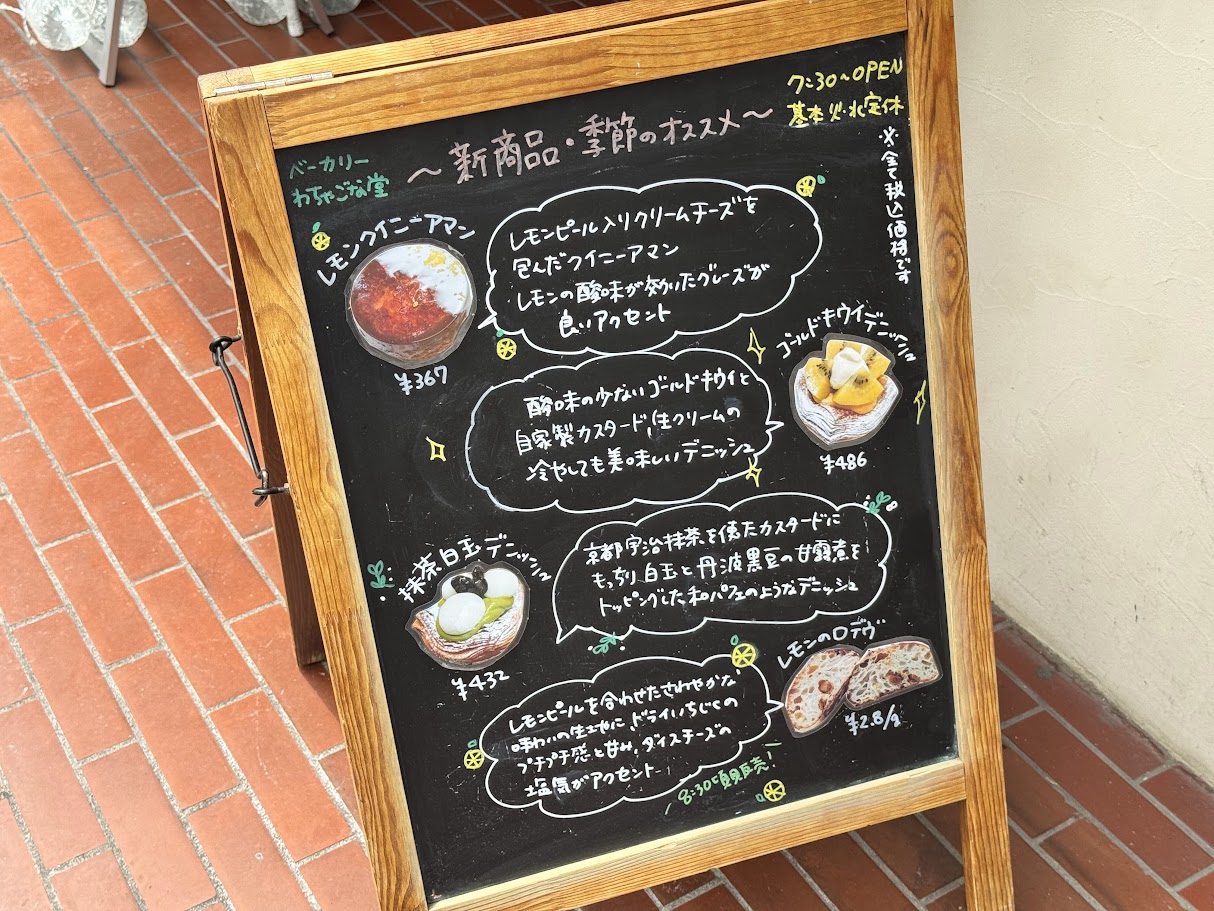 ベーカリー
わちゃごな堂
～新商品・季節のオススメ～
7:30～OPEN
基本火・水定休
※全て税込価格です
レモンクイニーアマン
¥367
レモンピール入りクリームチーズを
包んだクイニーアマン
レモンの酸味が効いたグレーズが
良いアクセント
ゴールドキウイデニッシュ
¥486
酸味の少ないゴールドキウイと
自家製カスタード,生クリームの
冷やしても美味しいデニッシュ
抹茶白玉デニッシュ
¥432
京都宇治抹茶を使たカスタードに
もっちり白玉と丹波黒豆の甘露煮を
トッピングした和パフェのようなデニッシュ
レモンのロデヴ
¥2.8/g
レモンピールを合わせたさわやかな
味わいの生地に,ドライいちじくの
プチプチ感と甘み,ダイスチーズの
塩気がアクセント
8:30頃販売!